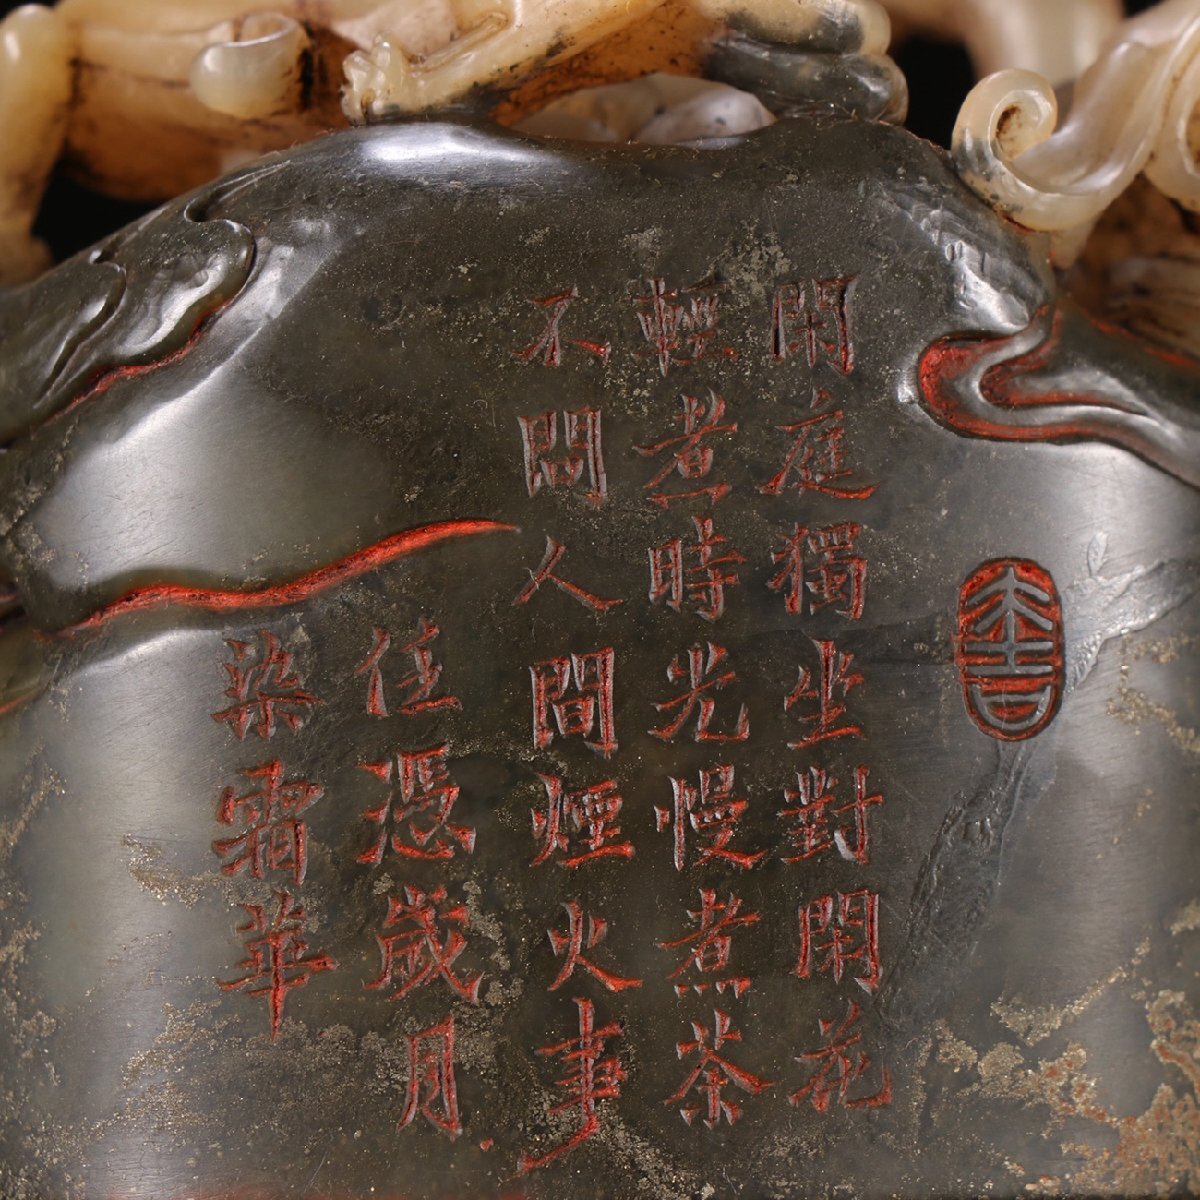 閑庭獨坐對閑花
輕煮時光慢煮茶
不問人間煙火事
任憑歲月
染霜華